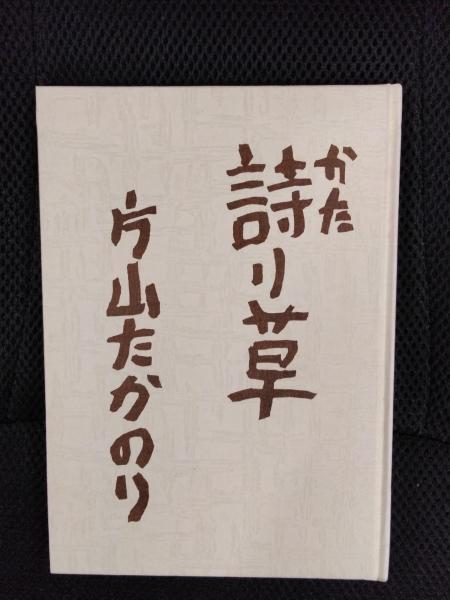 詩り草
かた
片山たかのり